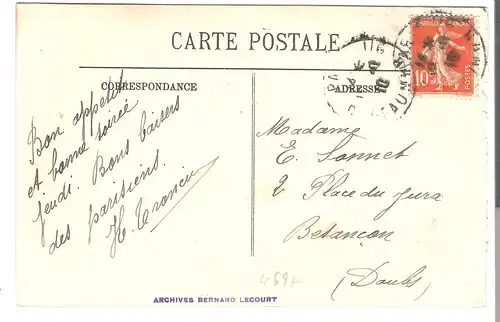 CARTE POSTALE
CORRESPONDANCE
Bon appétit
et bonne soirée
jeudi. Bons baisers
des parisiens.
ADRESSE
10
POSTES
Madame
E. Sonnet
2 Place du Jura
Besançon
(Doubs)
ARCHIVES BERNARD LECOURT